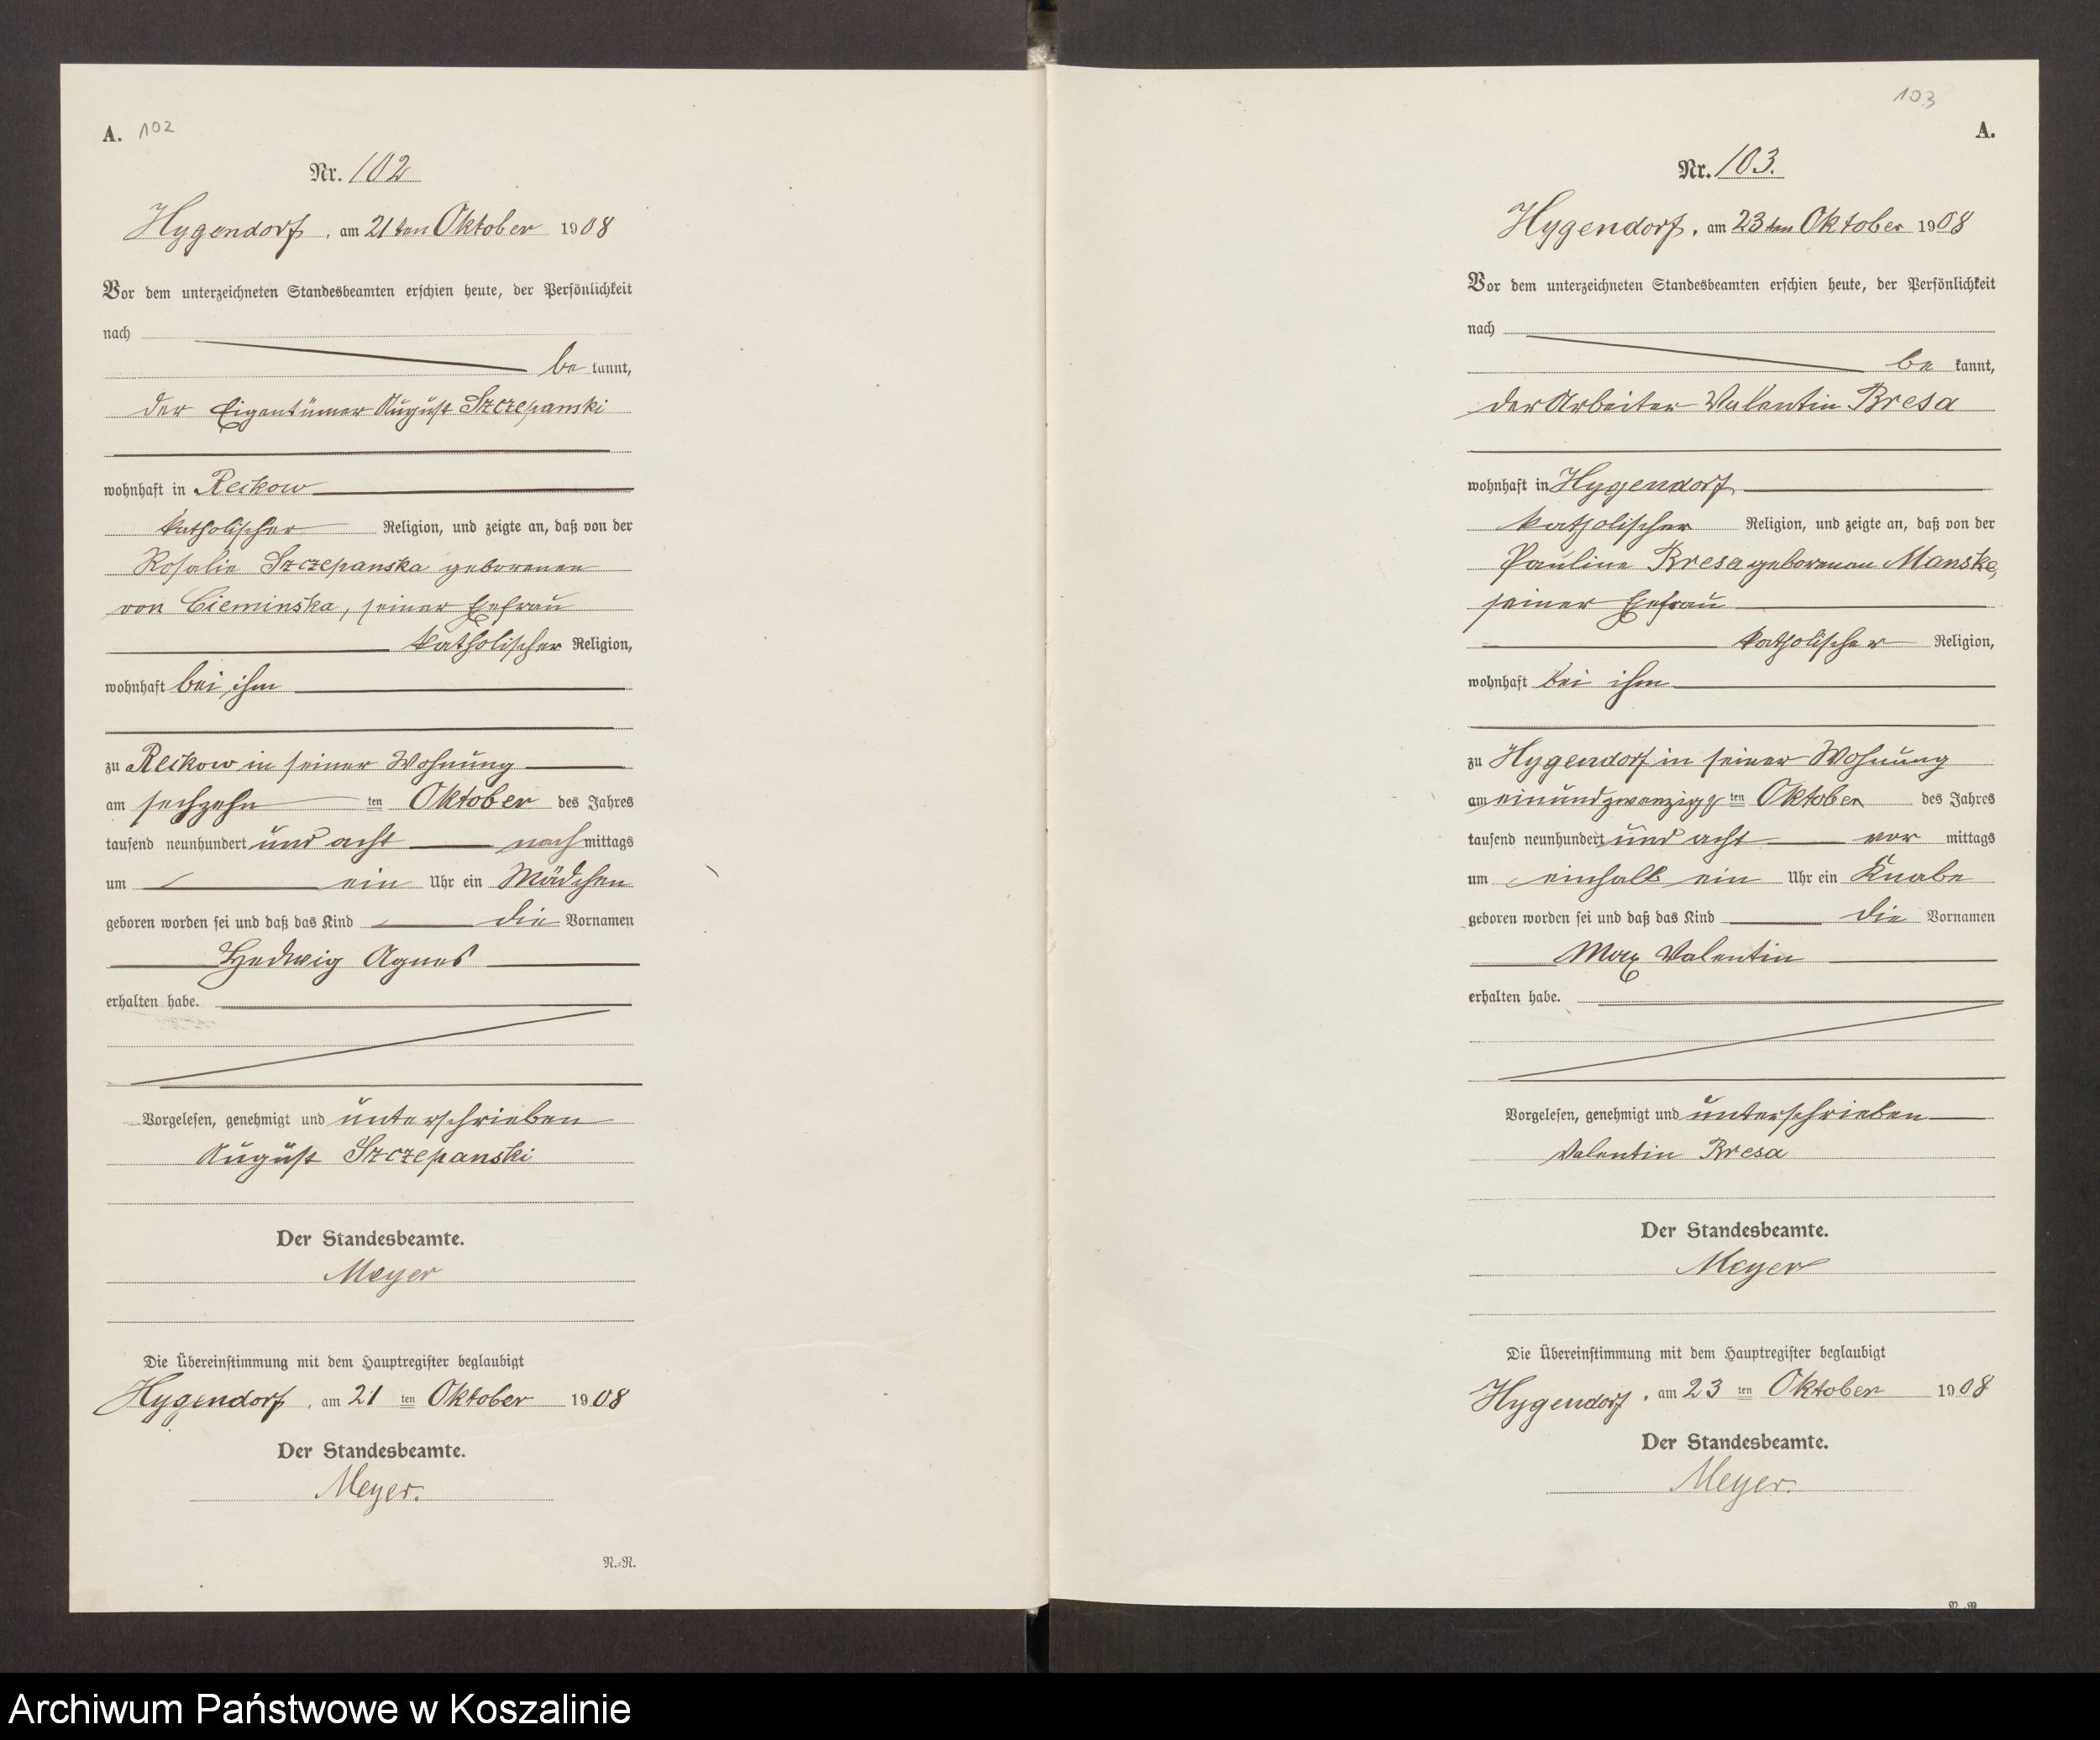 A. 102
Nr. 102
Hygendorf, am 21ten Oktober 1908
Vor dem unterzeichneten Standesbeamten erschien heute, der Persönlichkeit
nach
be kannt,
der Eigentümer August Szczepanski
wohnhaft in Reckow
katholischer Religion, und zeigte an, daß von der
Rosalie Szczepanska geborenen
von Cieminska, seiner Ehefrau
katholischer Religion,
wohnhaft bei ihm
zu Reckow in seiner Wohnung
am sechzehn ten Oktober des Jahres
tausend neunhundert und acht nach mittags
um ein Uhr ein Mädchen
geboren worden sei und daß das Kind die Vornamen
Hedwig Agnes
erhalten habe.
Vorgelesen, genehmigt und unterschrieben
August Szczepanski
Der Standesbeamte.
Meyer
Die Übereinstimmung mit dem Hauptregister beglaubigt
Hygendorf, am 21 ten Oktober 1908
Der Standesbeamte.
Meyer.
N.-N.
103
A.
Nr. 103.
Hygendorf, am 23ten Oktober 1908
Vor dem unterzeichneten Standesbeamten erschien heute, der Persönlichkeit
nach
be kannt,
der Arbeiter Valentin Bresa
wohnhaft in Hygendorf
katholischer Religion, und zeigte an, daß von der
Pauline Bresa geborenen Manske,
seiner Ehefrau
katholischer Religion,
wohnhaft bei ihm
zu Hygendorf in seiner Wohnung
am einundzwanzigs ten Oktober des Jahres
tausend neunhundert und acht vor mittags
um einhalb ein Uhr ein Knabe
geboren worden sei und daß das Kind die Vornamen
Max Valentin
erhalten habe.
Vorgelesen, genehmigt und unterschrieben
Valentin Bresa
Der Standesbeamte.
Meyer
Die Übereinstimmung mit dem Hauptregister beglaubigt
Hygendorf, am 23 ten Oktober 1908
Der Standesbeamte.
Meyer.
Archiwum Państwowe w Koszalinie